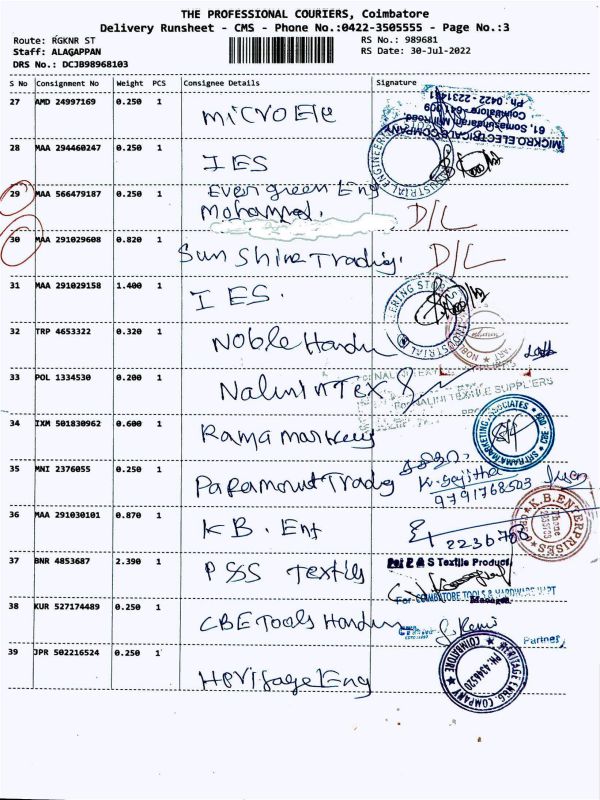 THE PROFESSIONAL COURIERS, Coimbatore
Delivery Runsheet - CMS - Phone No.:0422-3505555 - Page No.:3
Route: RGKNR ST
RS No.: 989681
Staff: ALAGAPPAN
RS Date: 30-Jul-2022
DRS No.: DCJB98968103
S No Consignment No Weight PCS Consignee Details Signature
27 AMD 24997169 0.250 1 MICRO Ele
MICKRO ELECTRICALS COMPANY
61, Somasundaram Mill Road,
Coimbatore - 641 009
Ph : 0422 - 2231491
28 MAA 294460247 0.250 1 IES
INDUSTRIAL ENGINEERING
29 MAA 566479187 0.250 1 Ever green Eng
Mohammed. D/L
30 MAA 291029608 0.820 1 Sun Shine Trading. D/L
31 MAA 291029158 1.400 1 IES.
INDUSTRIAL ENGINEERING STORES
32 TRP 4653322 0.320 1 Noble Hardw
NOBLE
33 POL 1334530 0.200 1 Nalini n Tex
For NALINI TEXTILE SUPPLIERS
34 IXM 501830962 0.600 1 Rama Marketing
SRI RAMA MARKETING ASSOCIATES
35 MNI 2376055 0.250 1 Paramount Trading
K. Sajitha
9791768503
36 MAA 291030101 0.870 1 K B. Ent
2236708
K.B. ENTERPRISES
Phone
37 BNR 4853687 2.390 1 PSS Textiles
For P & S Textile Product
Manager
38 KUR 527174489 0.250 1 CBE Tools Hardw
For COIMBATORE TOOLS & HARDWARE MART
Partner
39 JPR 502216524 0.250 1 Heritage Eng
HERITAGE ENGG. COMPANY
COIMBATORE
PH: 4346520